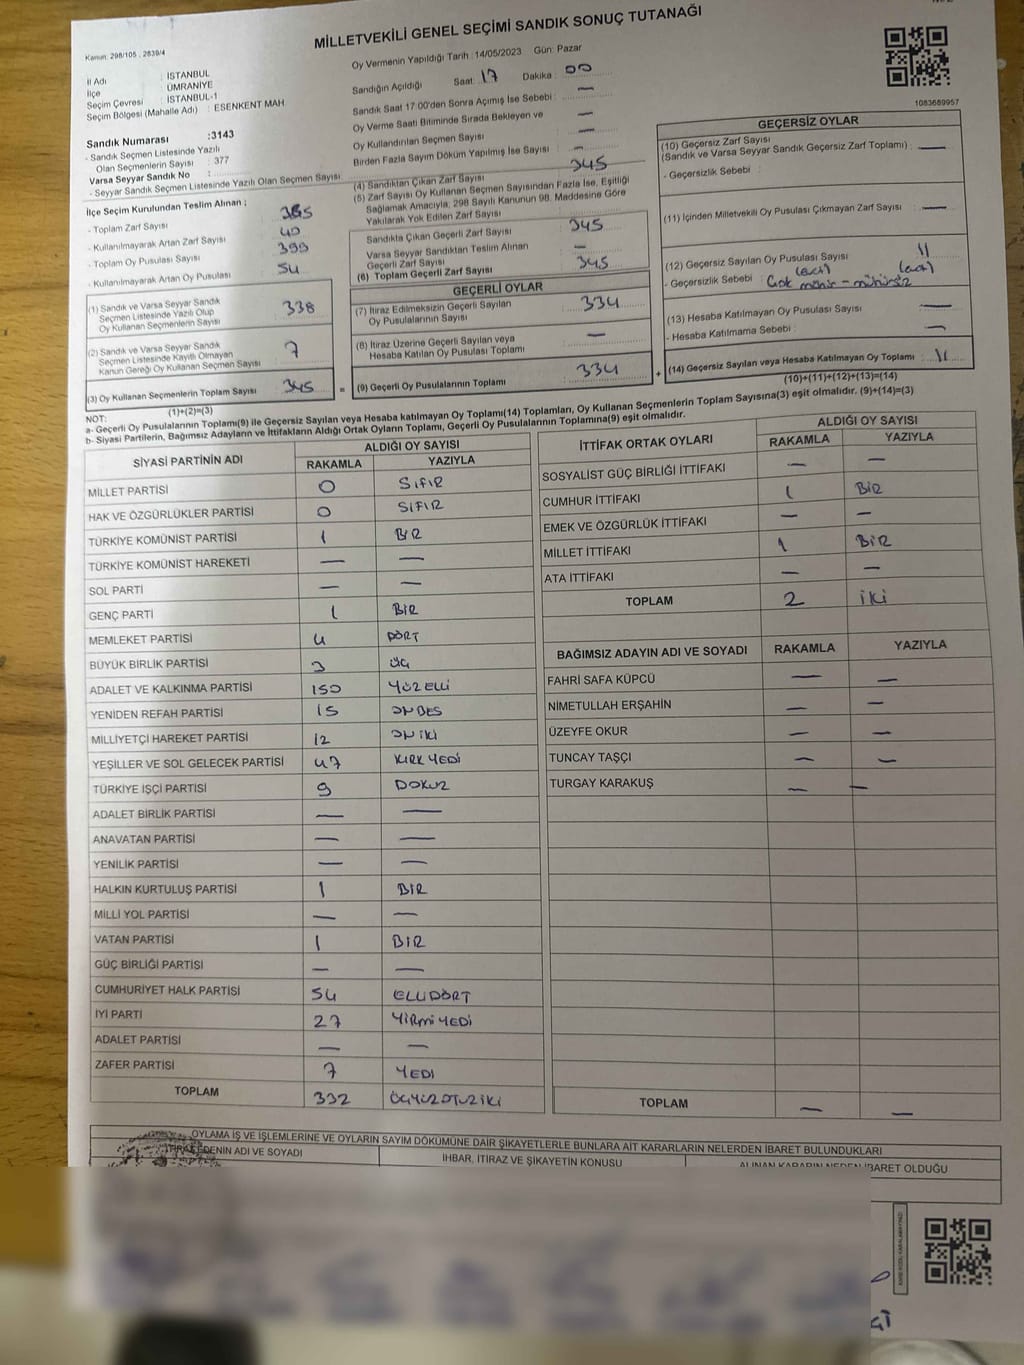 MİLLETVEKİLİ GENEL SEÇİMİ SANDIK SONUÇ TUTANAĞI
Kanun: 298/105 , 2839/4
İl Adı : İSTANBUL
İlçe : ÜMRANİYE
Seçim Çevresi : İSTANBUL-1
Seçim Bölgesi (Mahalle Adı) : ESENKENT MAH
Sandık Numarası :3143
- Sandık Seçmen Listesinde Yazılı
Olan Seçmenlerin Sayısı : 377
Varsa Seyyar Sandık No :
- Seyyar Sandık Seçmen Listesinde Yazılı Olan Seçmen Sayısı
Oy Vermenin Yapıldığı Tarih : 14/05/2023 Gün: Pazar
Sandığın Açıldığı Saat: 17 Dakika : 00
Sandık Saat 17:00'den Sonra Açımış İse Sebebi : —
Oy Verme Saati Bitiminde Sırada Bekleyen ve
Oy Kullandırılan Seçmen Sayısı : —
Birden Fazla Sayım Döküm Yapılmış İse Sayısı : —
1083689957
İlçe Seçim Kurulundan Teslim Alınan ;
- Toplam Zarf Sayısı : 385
- Kullanılmayarak Artan Zarf Sayısı : 40
- Toplam Oy Pusulası Sayısı : 399
- Kullanılmayarak Artan Oy Pusulası : 54
(1) Sandık ve Varsa Seyyar Sandık
Seçmen Listesinde Yazılı Olup
Oy Kullanan Seçmenlerin Sayısı : 338
(2) Sandık ve Varsa Seyyar Sandık
Seçmen Listesinde Kayıtlı Olmayan
Kanun Gereği Oy Kullanan Seçmen Sayısı : 7
(3) Oy Kullanan Seçmenlerin Toplam Sayısı : 345
(1)+(2)=(3)
(4) Sandıktan Çıkan Zarf Sayısı : 345
(5) Zarf Sayısı Oy Kullanan Seçmen Sayısından Fazla İse, Eşitliği
Sağlamak Amacıyla, 298 Sayılı Kanunun 98. Maddesine Göre
Yakılarak Yok Edilen Zarf Sayısı :
Sandıkta Çıkan Geçerli Zarf Sayısı : 345
Varsa Seyyar Sandıktan Teslim Alınan
Geçerli Zarf Sayısı : —
(6) Toplam Geçerli Zarf Sayısı : 345
GEÇERLİ OYLAR
(7) İtiraz Edilmeksizin Geçerli Sayılan
Oy Pusulalarının Sayısı : 334
(8) İtiraz Üzerine Geçerli Sayılan veya
Hesaba Katılan Oy Pusulası Toplamı : —
= (9) Geçerli Oy Pusulalarının Toplamı : 334 +
GEÇERSİZ OYLAR
(10) Geçersiz Zarf Sayısı
(Sandık ve Varsa Seyyar Sandık Geçersiz Zarf Toplamı) : —
- Geçersizlik Sebebi :
(11) İçinden Milletvekili Oy Pusulası Çıkmayan Zarf Sayısı : —
(12) Geçersiz Sayılan Oy Pusulası Sayısı : 11
- Geçersizlik Sebebi : Çok mühür - mühürsüz
(13) Hesaba Katılmayan Oy Pusulası Sayısı : —
- Hesaba Katılmama Sebebi : —
(14) Geçersiz Sayılan veya Hesaba Katılmayan Oy Toplamı : 11
(10)+(11)+(12)+(13)=(14)
NOT:
a- Geçerli Oy Pusulasının Toplamı(9) ile Geçersiz Sayılan veya Hesaba katılmayan Oy Toplamı(14) Toplamları, Oy Kullanan Seçmenlerin Toplam Sayısına(3) eşit olmalıdır. (9)+(14)=(3)
b- Siyasi Partilerin, Bağımsız Adayların ve İttifakların Aldığı Ortak Oyların Toplamı, Geçerli Oy Pusulalarının Toplamına(9) eşit olmalıdır.
SİYASİ PARTİNİN ADI ALDIĞI OY SAYISI
RAKAMLA YAZIYLA
MİLLET PARTİSİ 0 SIFIR
HAK VE ÖZGÜRLÜKLER PARTİSİ 0 SIFIR
TÜRKİYE KOMÜNİST PARTİSİ 1 BİR
TÜRKİYE KOMÜNİST HAREKETİ — —
SOL PARTİ — —
GENÇ PARTİ 1 BİR
MEMLEKET PARTİSİ 4 DÖRT
BÜYÜK BİRLİK PARTİSİ 3 ÜÇ
ADALET VE KALKINMA PARTİSİ 150 YÜZELLİ
YENİDEN REFAH PARTİSİ 15 ONBEŞ
MİLLİYETÇİ HAREKET PARTİSİ 12 ONİKİ
YEŞİLLER VE SOL GELECEK PARTİSİ 47 KIRKYEDİ
TÜRKİYE İŞÇİ PARTİSİ 9 DOKUZ
ADALET BİRLİK PARTİSİ — —
ANAVATAN PARTİSİ — —
YENİLİK PARTİSİ — —
HALKIN KURTULUŞ PARTİSİ 1 BİR
MİLLİ YOL PARTİSİ — —
VATAN PARTİSİ 1 BİR
GÜÇ BİRLİĞİ PARTİSİ — —
CUMHURİYET HALK PARTİSİ 54 ELLİDÖRT
İYİ PARTİ 27 YİRMİYEDİ
ADALET PARTİSİ — —
ZAFER PARTİSİ 7 YEDİ
TOPLAM 332 ÜÇYÜZOTUZİKİ
İTTİFAK ORTAK OYLARI ALDIĞI OY SAYISI
RAKAMLA YAZIYLA
SOSYALİST GÜÇ BİRLİĞİ İTTİFAKI — —
CUMHUR İTTİFAKI 1 BİR
EMEK VE ÖZGÜRLÜK İTTİFAKI — —
MİLLET İTTİFAKI 1 BİR
ATA İTTİFAKI — —
TOPLAM 2 İKİ
BAĞIMSIZ ADAYIN ADI VE SOYADI RAKAMLA YAZIYLA
FAHRİ SAFA KÜPCÜ — —
NİMETULLAH ERŞAHİN — —
ÜZEYFE OKUR — —
TUNCAY TAŞÇI — —
TURGAY KARAKUŞ — —
TOPLAM — —
OYLAMA İŞ VE İŞLEMLERİNE VE OYLARIN SAYIM DÖKÜMÜNE DAİR ŞİKAYETLERLE BUNLARA AİT KARARLARIN NELERDEN İBARET BULUNDUKLARI
İTİRAZ EDENİN ADI VE SOYADI İHBAR, İTİRAZ VE ŞİKAYETİN KONUSU ALINAN KARARIN NEDEN İBARET OLDUĞU